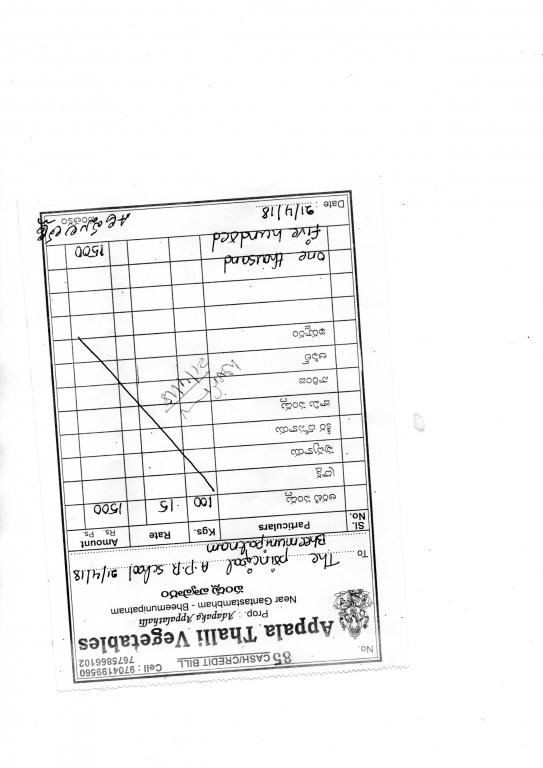 No. 85 CASH/CREDIT BILL Cell : 9704199560
7675866102
Appala Thalli Vegetables
Prop. : Adapaka Appalathalli
Near Gantastambham - Bheemunipatnam
పండ్లు వ్యాపారం
To The principal A.P.R. School 21/4/18
Bheemunipatnam
Sl. No. Particulars Kgs. Rate Amount
Rs. Ps.
అరటి పండ్లు 100 15 1500
ద్రాక్ష
పుచ్చకాయ
కీర దోసకాయ
జామ పండ్లు
నారింజ
ఆపిల్
ఖర్జూరం
one thousand
five hundred 1500
Date : 21/4/18 సంతకం